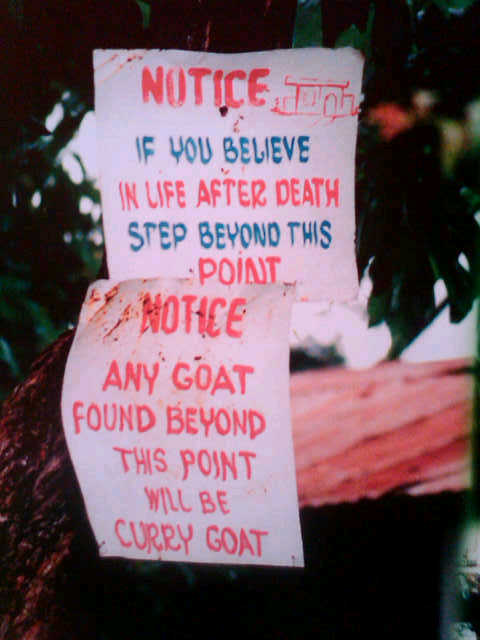 NOTICE
IF YOU BELIEVE
IN LIFE AFTER DEATH
STEP BEYOND THIS
POINT
NOTICE
ANY GOAT
FOUND BEYOND
THIS POINT
WILL BE
CURRY GOAT